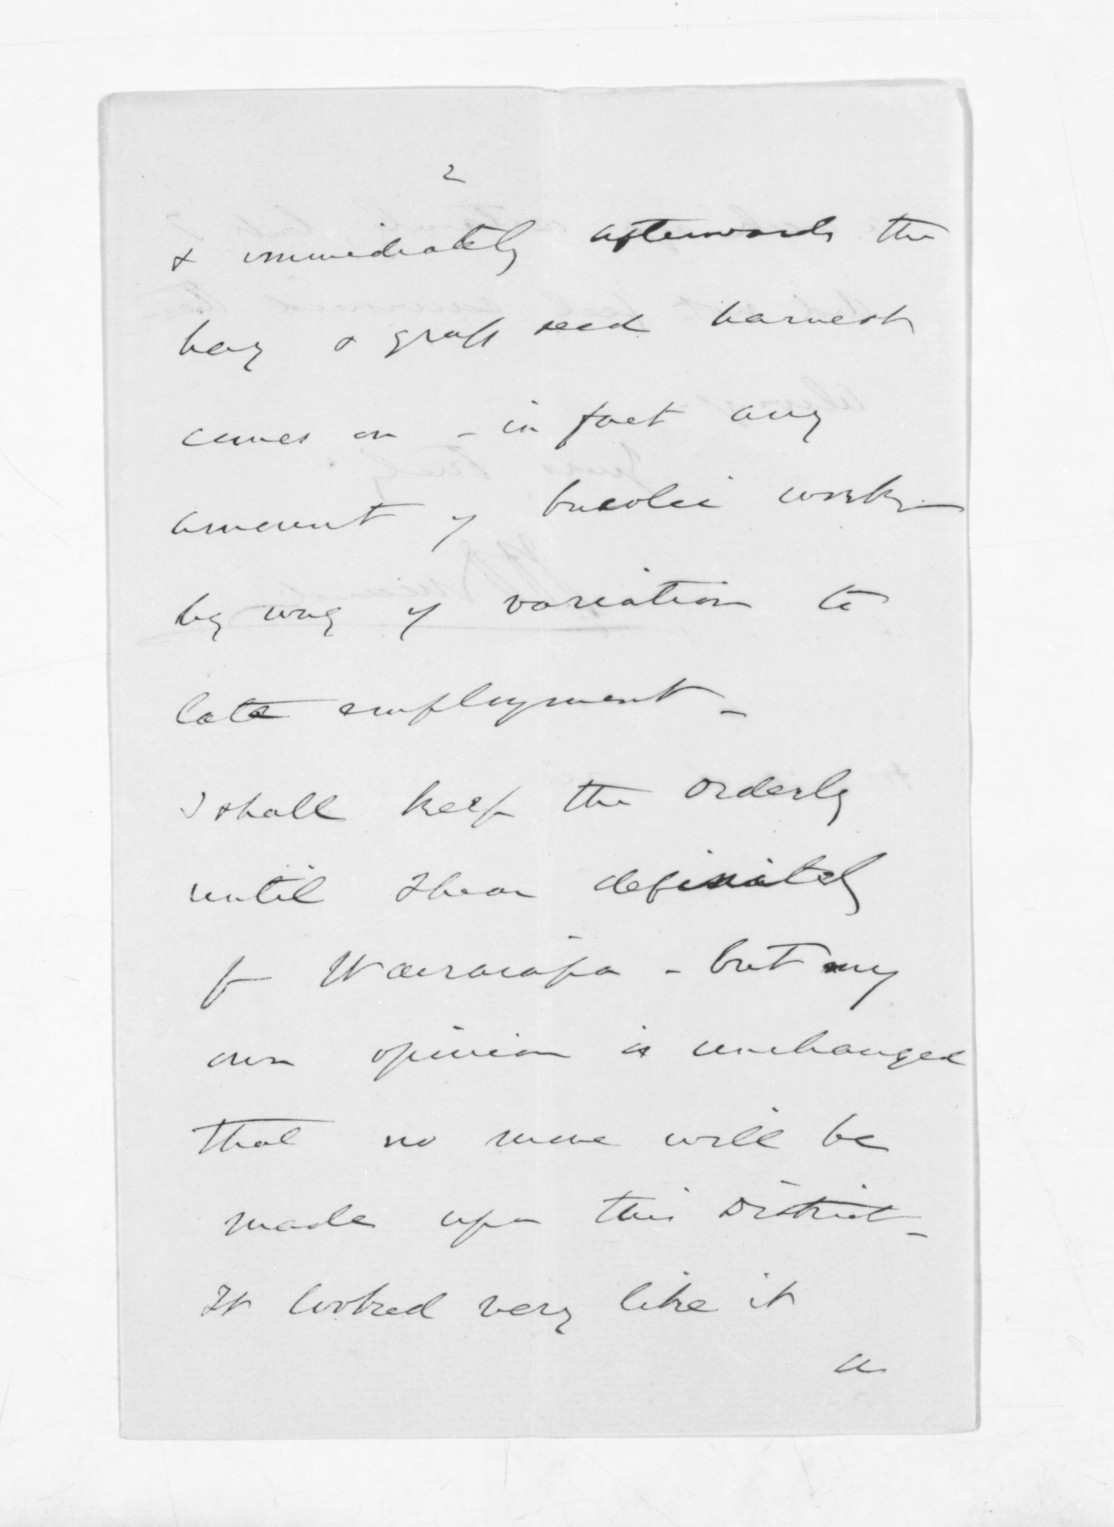 2
& immediately afterwards the
hay & grass seed harvest
comes on - in fact any
amount of bucolic work
by way of variation to
late employment -
I shall keep the orderly
until I hear definitely
fm Wairarapa - but my
own opinion is unchanged
that no move will be
made upon this District -
It looked very like it
a